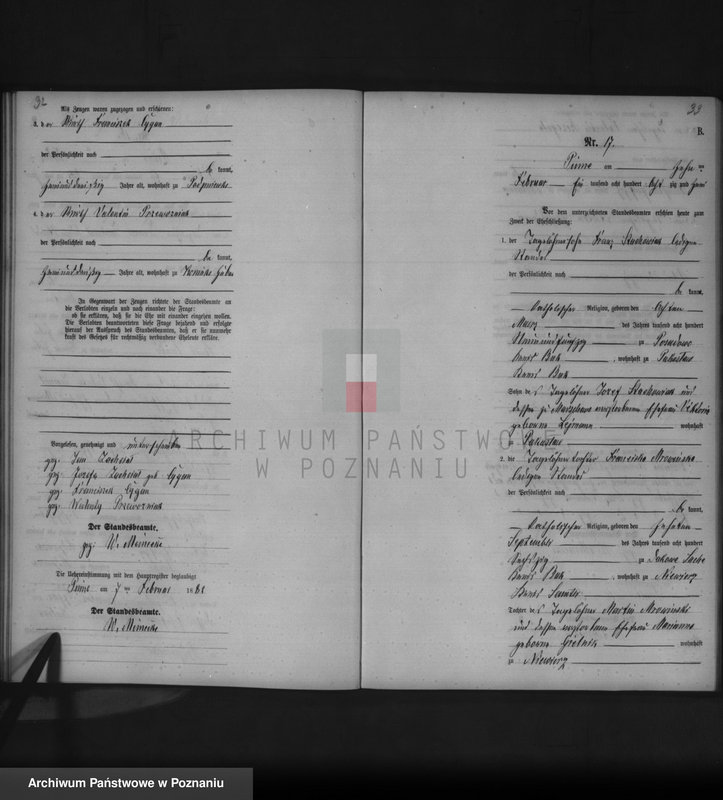 32
Als Zeugen waren zugezogen und erschienen:
3. der Wirth Franciszek Cygan
der Persönlichkeit nach
be kannt,
zweiunddreißig Jahre alt, wohnhaft zu Podpniewki
4. der Wirth Valentin Przewozniak
der Persönlichkeit nach
be kannt,
zweiunddreißig Jahre alt, wohnhaft zu
In Gegenwart der Zeugen richtete der Standesbeamte an
die Verlobten einzeln und nach einander die Frage:
ob sie erklären, daß sie die Ehe mit einander eingehen wollen.
Die Verlobten beantworteten diese Frage bejahend und erfolgte
hierauf der Ausspruch des Standesbeamten, daß er sie nunmehr
kraft des Gesetzes für rechtmäßig verbundene Eheleute erkläre.
Vorgelesen, genehmigt und unterschrieben
gez. Jan
gez. Józefa geb. Cygan
gez. Franciszek Cygan
gez. Walenty Przewozniak
Der Standesbeamte.
gez. W. Meinecke
Die Uebereinstimmung mit dem Hauptregister beglaubigt
Pinne am 7 ten Februar 188
Der Standesbeamte.
W. Meinecke
33
B.
Nr. 17.
Pinne am zehn ten
Februar Ein tausend acht hundert acht zig und
Vor dem unterzeichneten Standesbeamten erschien heute zum
Zweck der Eheschließung:
1. der Tagelöhnersohn Franz Stachowiak ledigen
Standes
der Persönlichkeit nach
be kannt,
katholischer Religion, geboren den achten
März des Jahres tausend acht hundert
neunundfünfzig zu Posadowo
Kreis Buk, wohnhaft zu Pakosław
Kreis Buk
Sohn des Tagelöhner Józef Stachowiak und
dessen zu verstorbenen Ehefrau Viktoria
geborene wohnhaft
zu Pakosław
2. die Tagelöhnertochter Franciszka Mrowińska
ledigen Standes
der Persönlichkeit nach
be kannt,
katholischer Religion, geboren den zehnten
September des Jahres tausend acht hundert
sechszig zu Dakowe
Kreis Buk, wohnhaft zu Niewierz
Kreis Samter
Tochter des Tagelöhner Martin Mrowiński
und dessen verstorbenen Ehefrau Marianna
geborene wohnhaft
zu Niewierz
ARCHIWUM PAŃSTWOWE
W POZNANIU
Archiwum Państwowe w Poznaniu